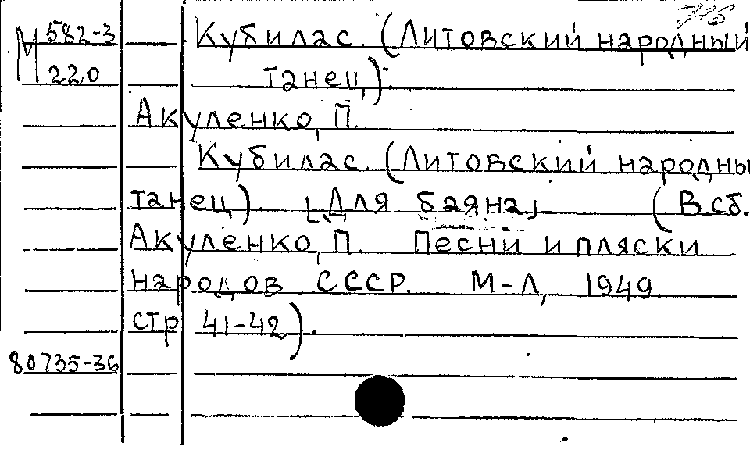 М 582-3 Кубилас. (Литовский народный
220 танец).
Акуленко, П.
Кубилас. (Литовский народны
танец). [Для баяна] (В сб.
Акуленко, П. Песни и пляски
народов СССР. М-Л, 1949
стр 41-42).
80735-36